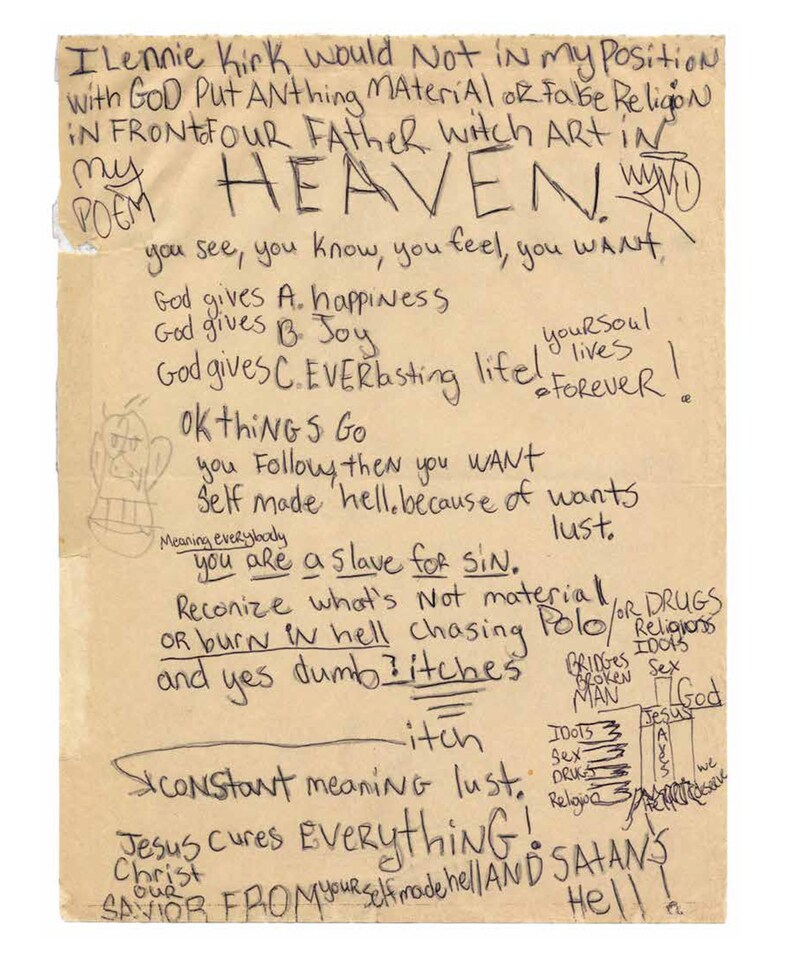 I Lennie Kirk would Not in my Position
with GOD Put ANthing MAteriAl or False Religion
iN FRONT of OUR FATHER witch ART iN
HEAVEN.
my
POEM
you see, you know, you feel, you WANt.
God gives A. happiNess
God gives B. Joy
God gives C. EVERlasting life!
youR soul
lives
FOREVER!
OK thiNGS Go
you Follow, theN you WANT
Self made hell. because of wants
lust.
Meaning everybody
you aRe a slave foR siN.
Reconize what's Not material
OR burn iN hell chasing Polo/OR DRUGS
Religions
IDOls
Sex
and yes dumb ?itches
itch
CONStant meaniNG lust.
BRIDGES
BROKEN
MAN
God
Jesus
IDOls
Sex
DRUGS
Religion
we
deserve
Jesus cures EVERythiNG!
Christ
our
SAVIOR FROM your self made hell AND SATANS
Hell!